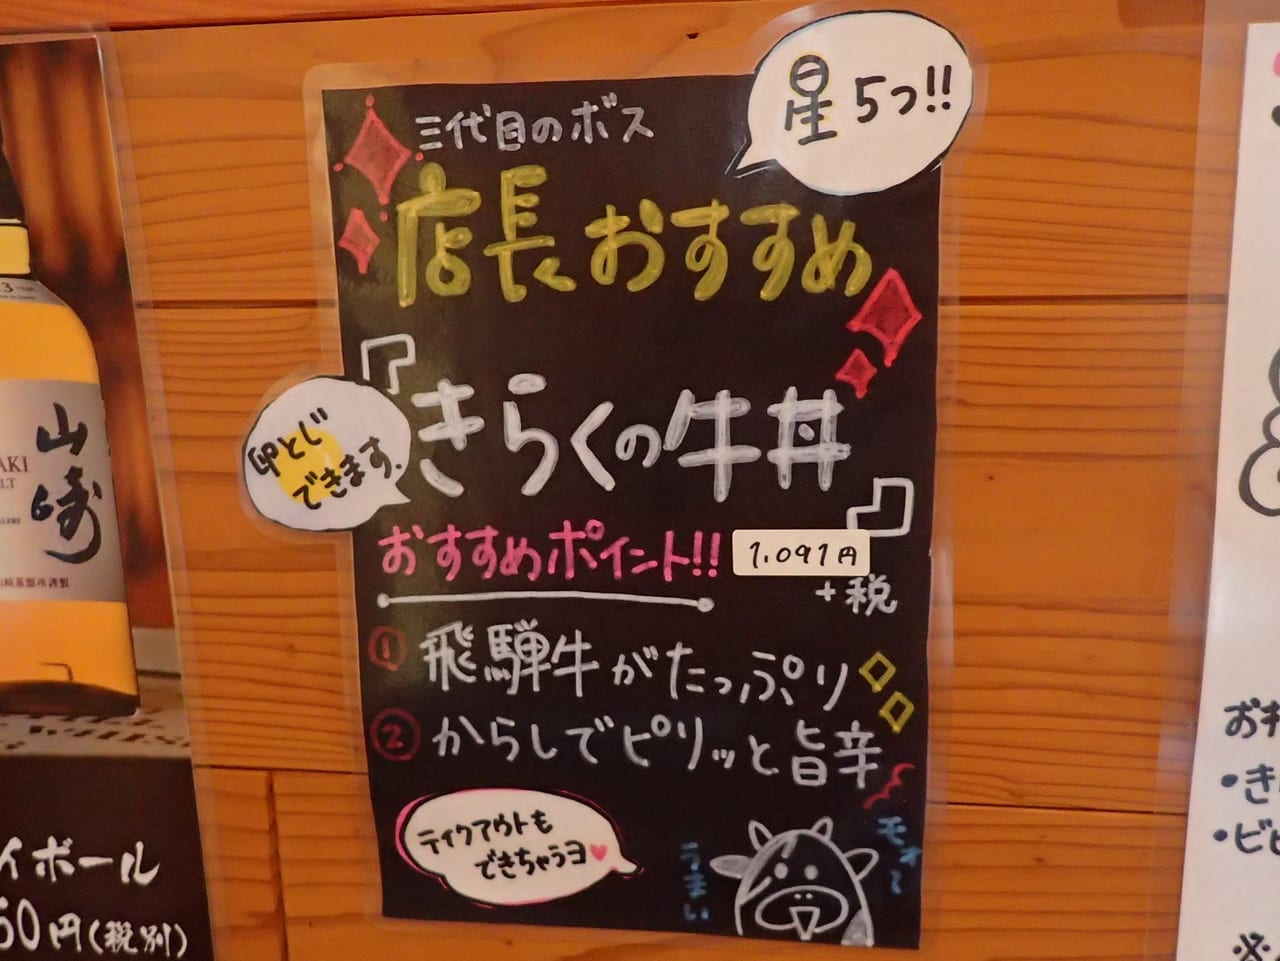 星5つ!!
三代目のボス
店長おすすめ
『きらくの牛丼』
卵とじ
できます.
おすすめポイント!!
1,091円
+税
① 飛騨牛がたっぷり
② からしでピリッと旨辛
ティクアウトも
できちゃうヨ
モォ〜
うまい
山崎
AKI
LT
山崎蒸留所謹製
イボール
50円(税別)
お
・き
・ビ
※